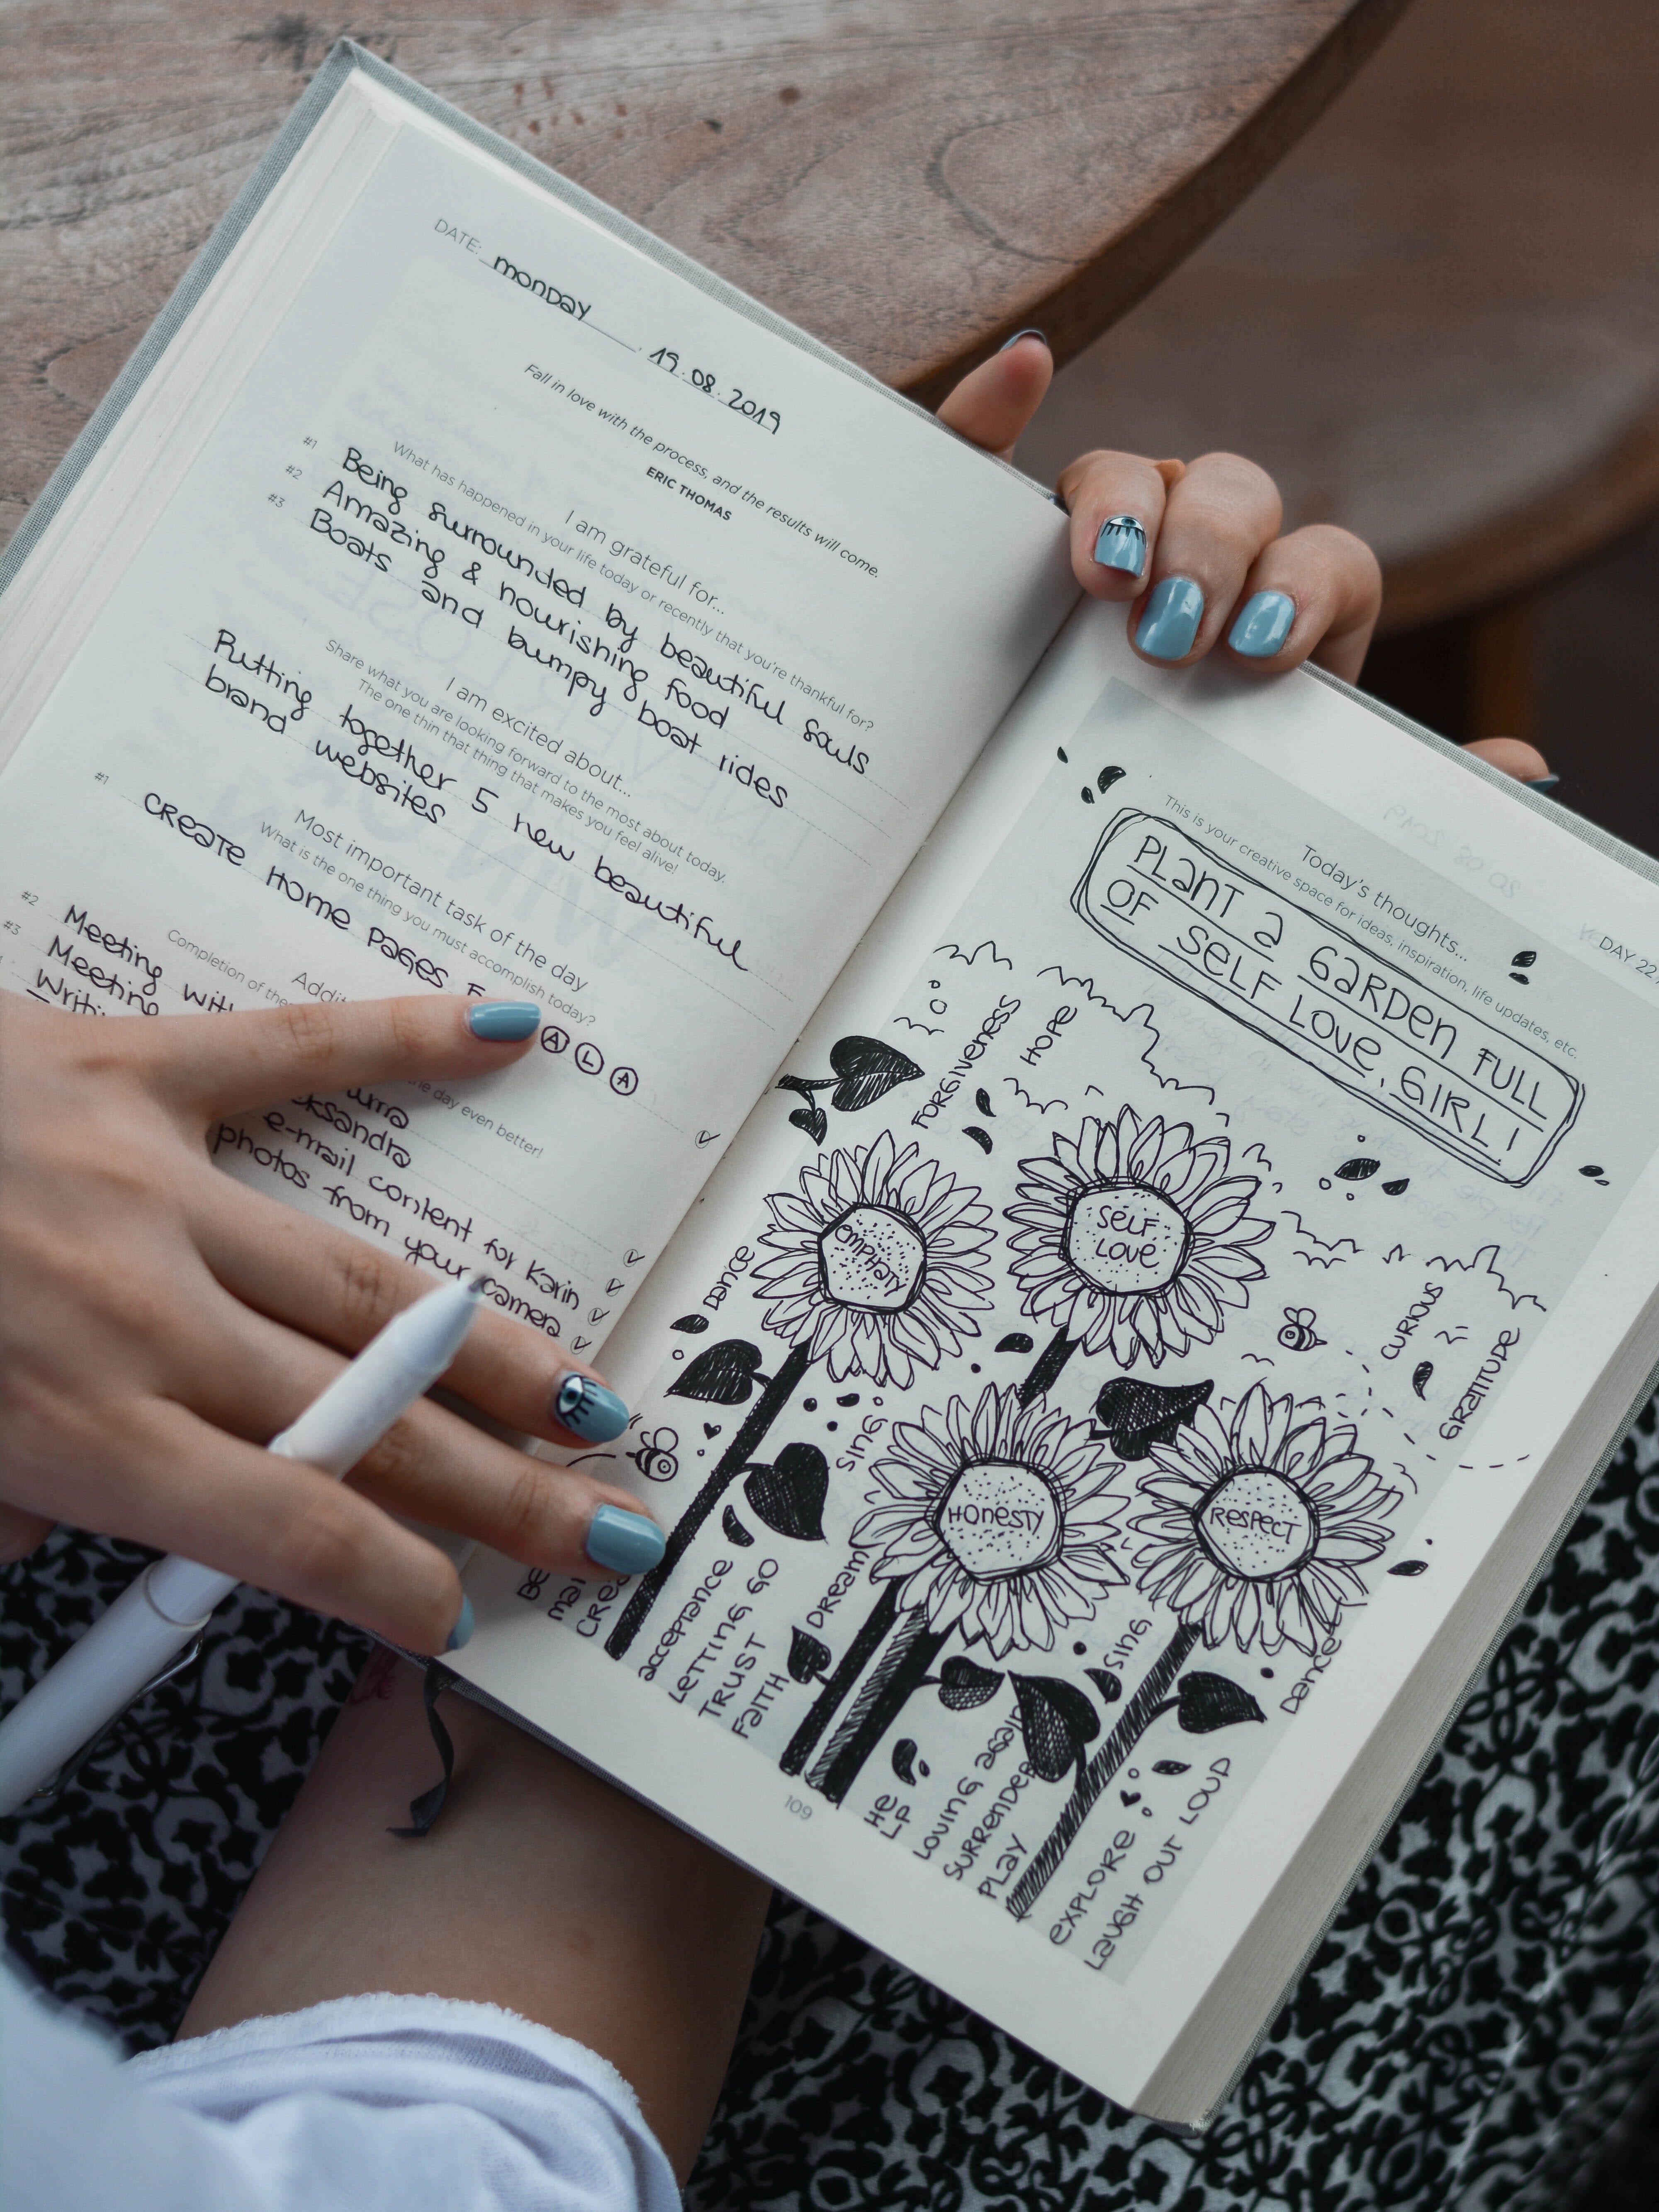 DATE: monday, 19.08.2019
Fall in love with the process, and the results will come.
ERIC THOMAS
I am grateful for...
What has happened in your life today or recently that you're thankful for?
#1 Being surrounded by beautiful souls
#2 Amazing & nourishing food
#3 Boats and bumpy boat rides
I am excited about...
Share what you are looking forward to the most about today.
The one thin that thing that makes you feel alive!
Putting together 5 new beautiful
brand websites
Most important task of the day
What is the one thing you must accomplish today?
#1 CREATE HOME PAGES
A L A
Completion of the
the day even better!
#2 Meeting
#3 Meeting
e-mail content for Karin
photos from your camera
DAY 22
Today's thoughts...
This is your creative space for ideas, inspiration, life updates, etc.
PLANT A GARDEN FULL
OF SELF LOVE, GIRL!
FORGIVENESS
HOPE
EMPHATY
SELF
LOVE
DANCE
CURIOUS
GRATITUDE
SING
HONESTY
RESPECT
ACCEPTANCE
LETTING GO
TRUST
FAITH
DREAM
SING
DANCE
HE
LP
LOVING AGAIN
SURRENDER
PLAY
EXPLORE
LAUGH OUT LOUD
109